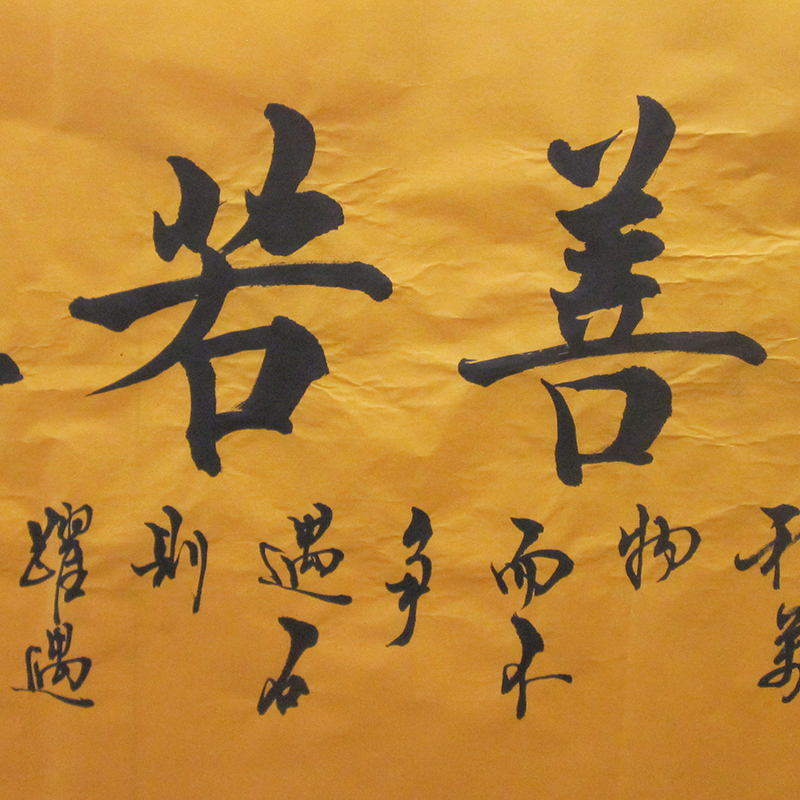 善若
利萬
物
而不
争
遇石
則
躍遇